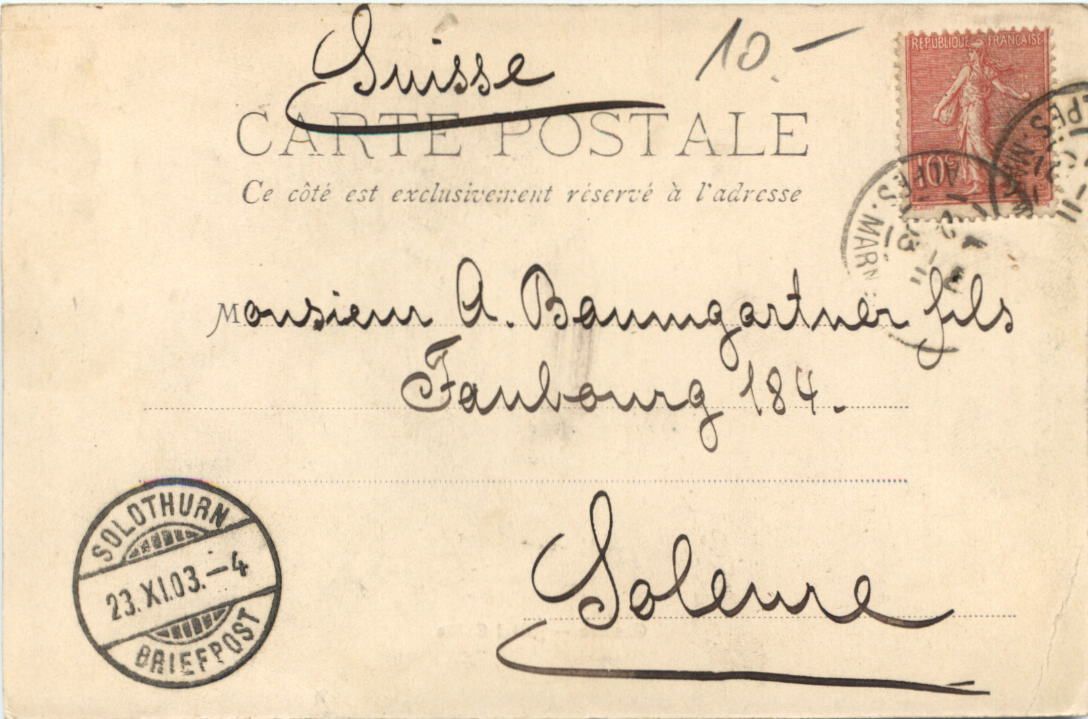 Suisse
10.-
REPUBLIQUE FRANÇAISE
10c
CARTE POSTALE
Ce côté est exclusivement réservé à l'adresse
ALPES-MAR
Monsieur A. Baumgartner fils
Faubourg 184.
Soleure
SOLOTHURN
23.XI.03.-4
BRIEFPOST